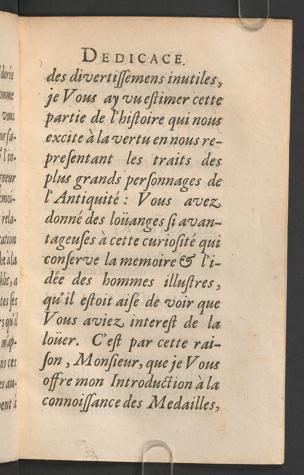 DEDICACE.
des divertiſſemens inutiles,
je Vous ay vu eſtimer cette
partie de l'hiſtoire qui nous
excite à la vertu en nous re-
preſentant les traits des
plus grands perſonnages de
l'Antiquité : Vous avez
donné des loüanges ſi avan-
tageuſes à cette curioſité qui
conſerve la memoire & l'i-
dée des hommes illuſtres,
qu'il eſtoit aiſé de voir que
Vous aviez intereſt de la
loüer. C'eſt par cette rai-
ſon, Monſieur, que je Vous
offre mon Introduction à la
connoiſſance des Medailles,